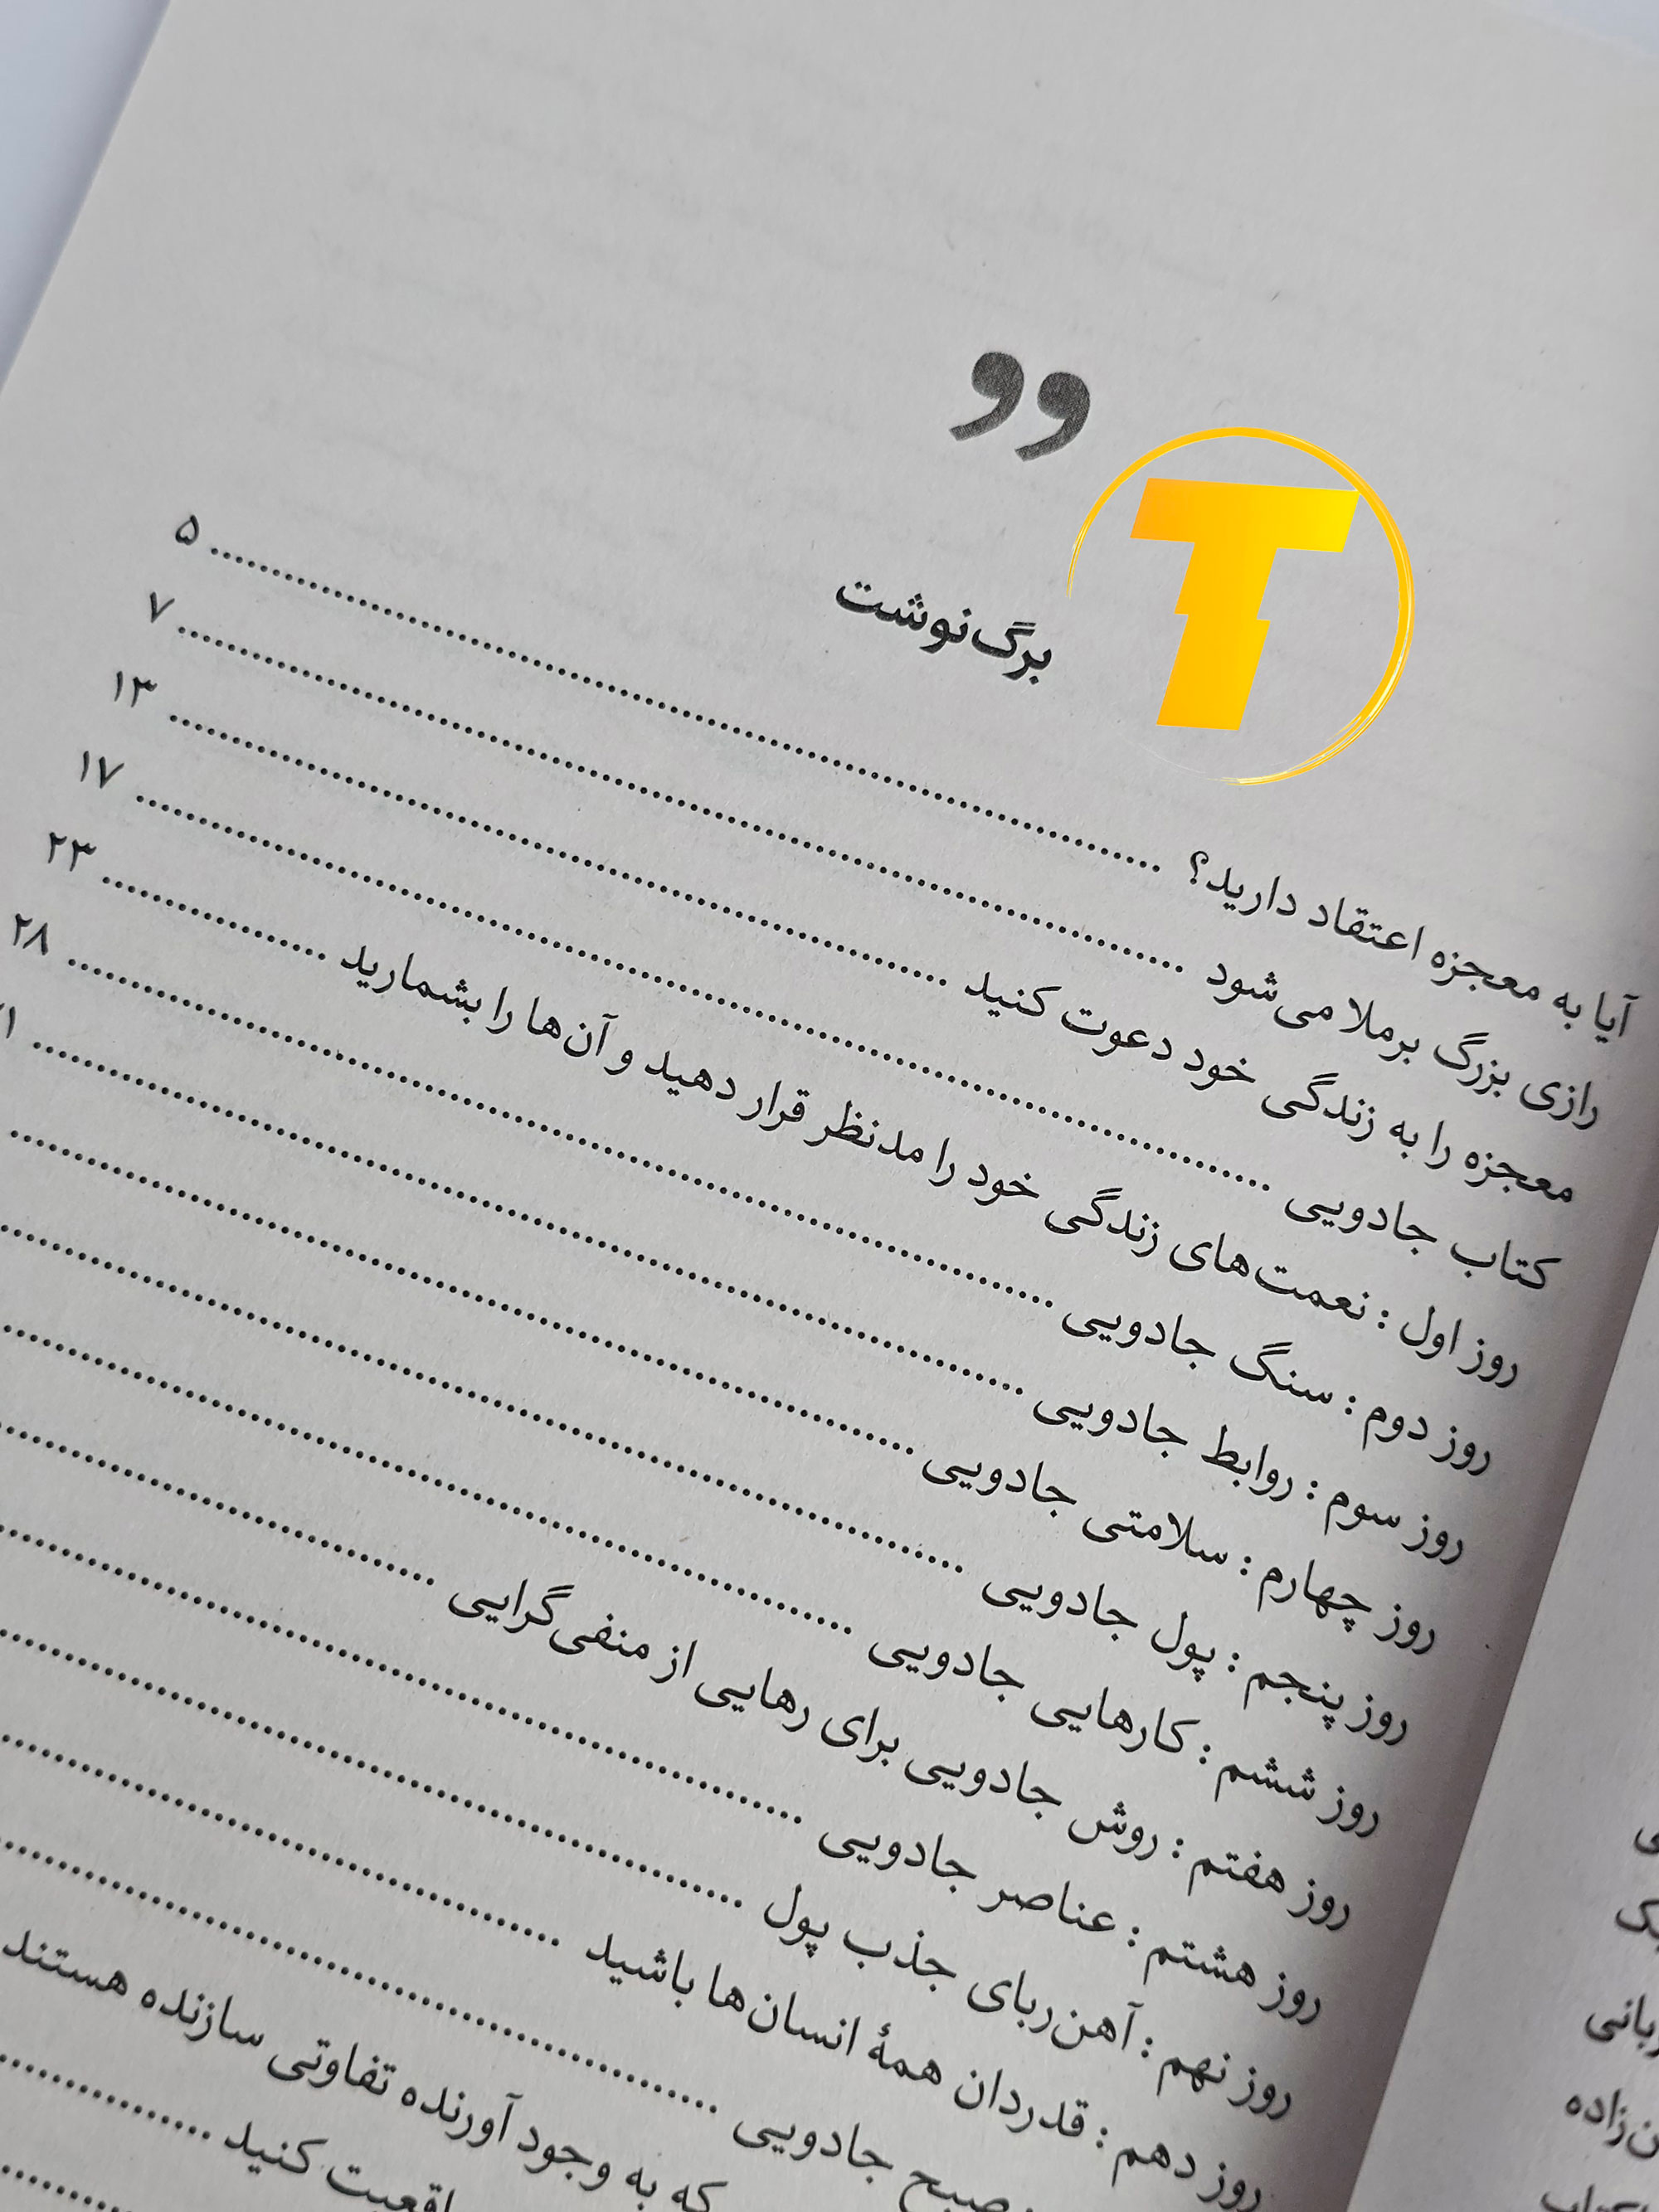 „
برگ‌نوشت
آیا به معجزه اعتقاد دارید؟ ........ ۵
رازی بزرگ برملا می‌شود ........ ۷
معجزه را به زندگی خود دعوت کنید ........ ۱۳
کتاب جادویی ........ ۱۷
روز اول : نعمت‌های زندگی خود را مدنظر قرار دهید و آن‌ها را بشمارید ........ ۲۳
روز دوم : سنگ جادویی ........ ۲۸
روز سوم : روابط جادویی ........
روز چهارم : سلامتی جادویی ........
روز پنجم : پول جادویی ........
روز ششم : کارهایی جادویی ........
روز هفتم : روش جادویی برای رهایی از منفی‌گرایی ........
روز هشتم : عناصر جادویی ........
روز نهم : آهن‌ربای جذب پول ........
روز دهم : قدردان همهٔ انسان‌ها باشید ........
صبح جادویی ........
که به وجود آورنده تفاوتی سازنده هستند
کنید ........
T